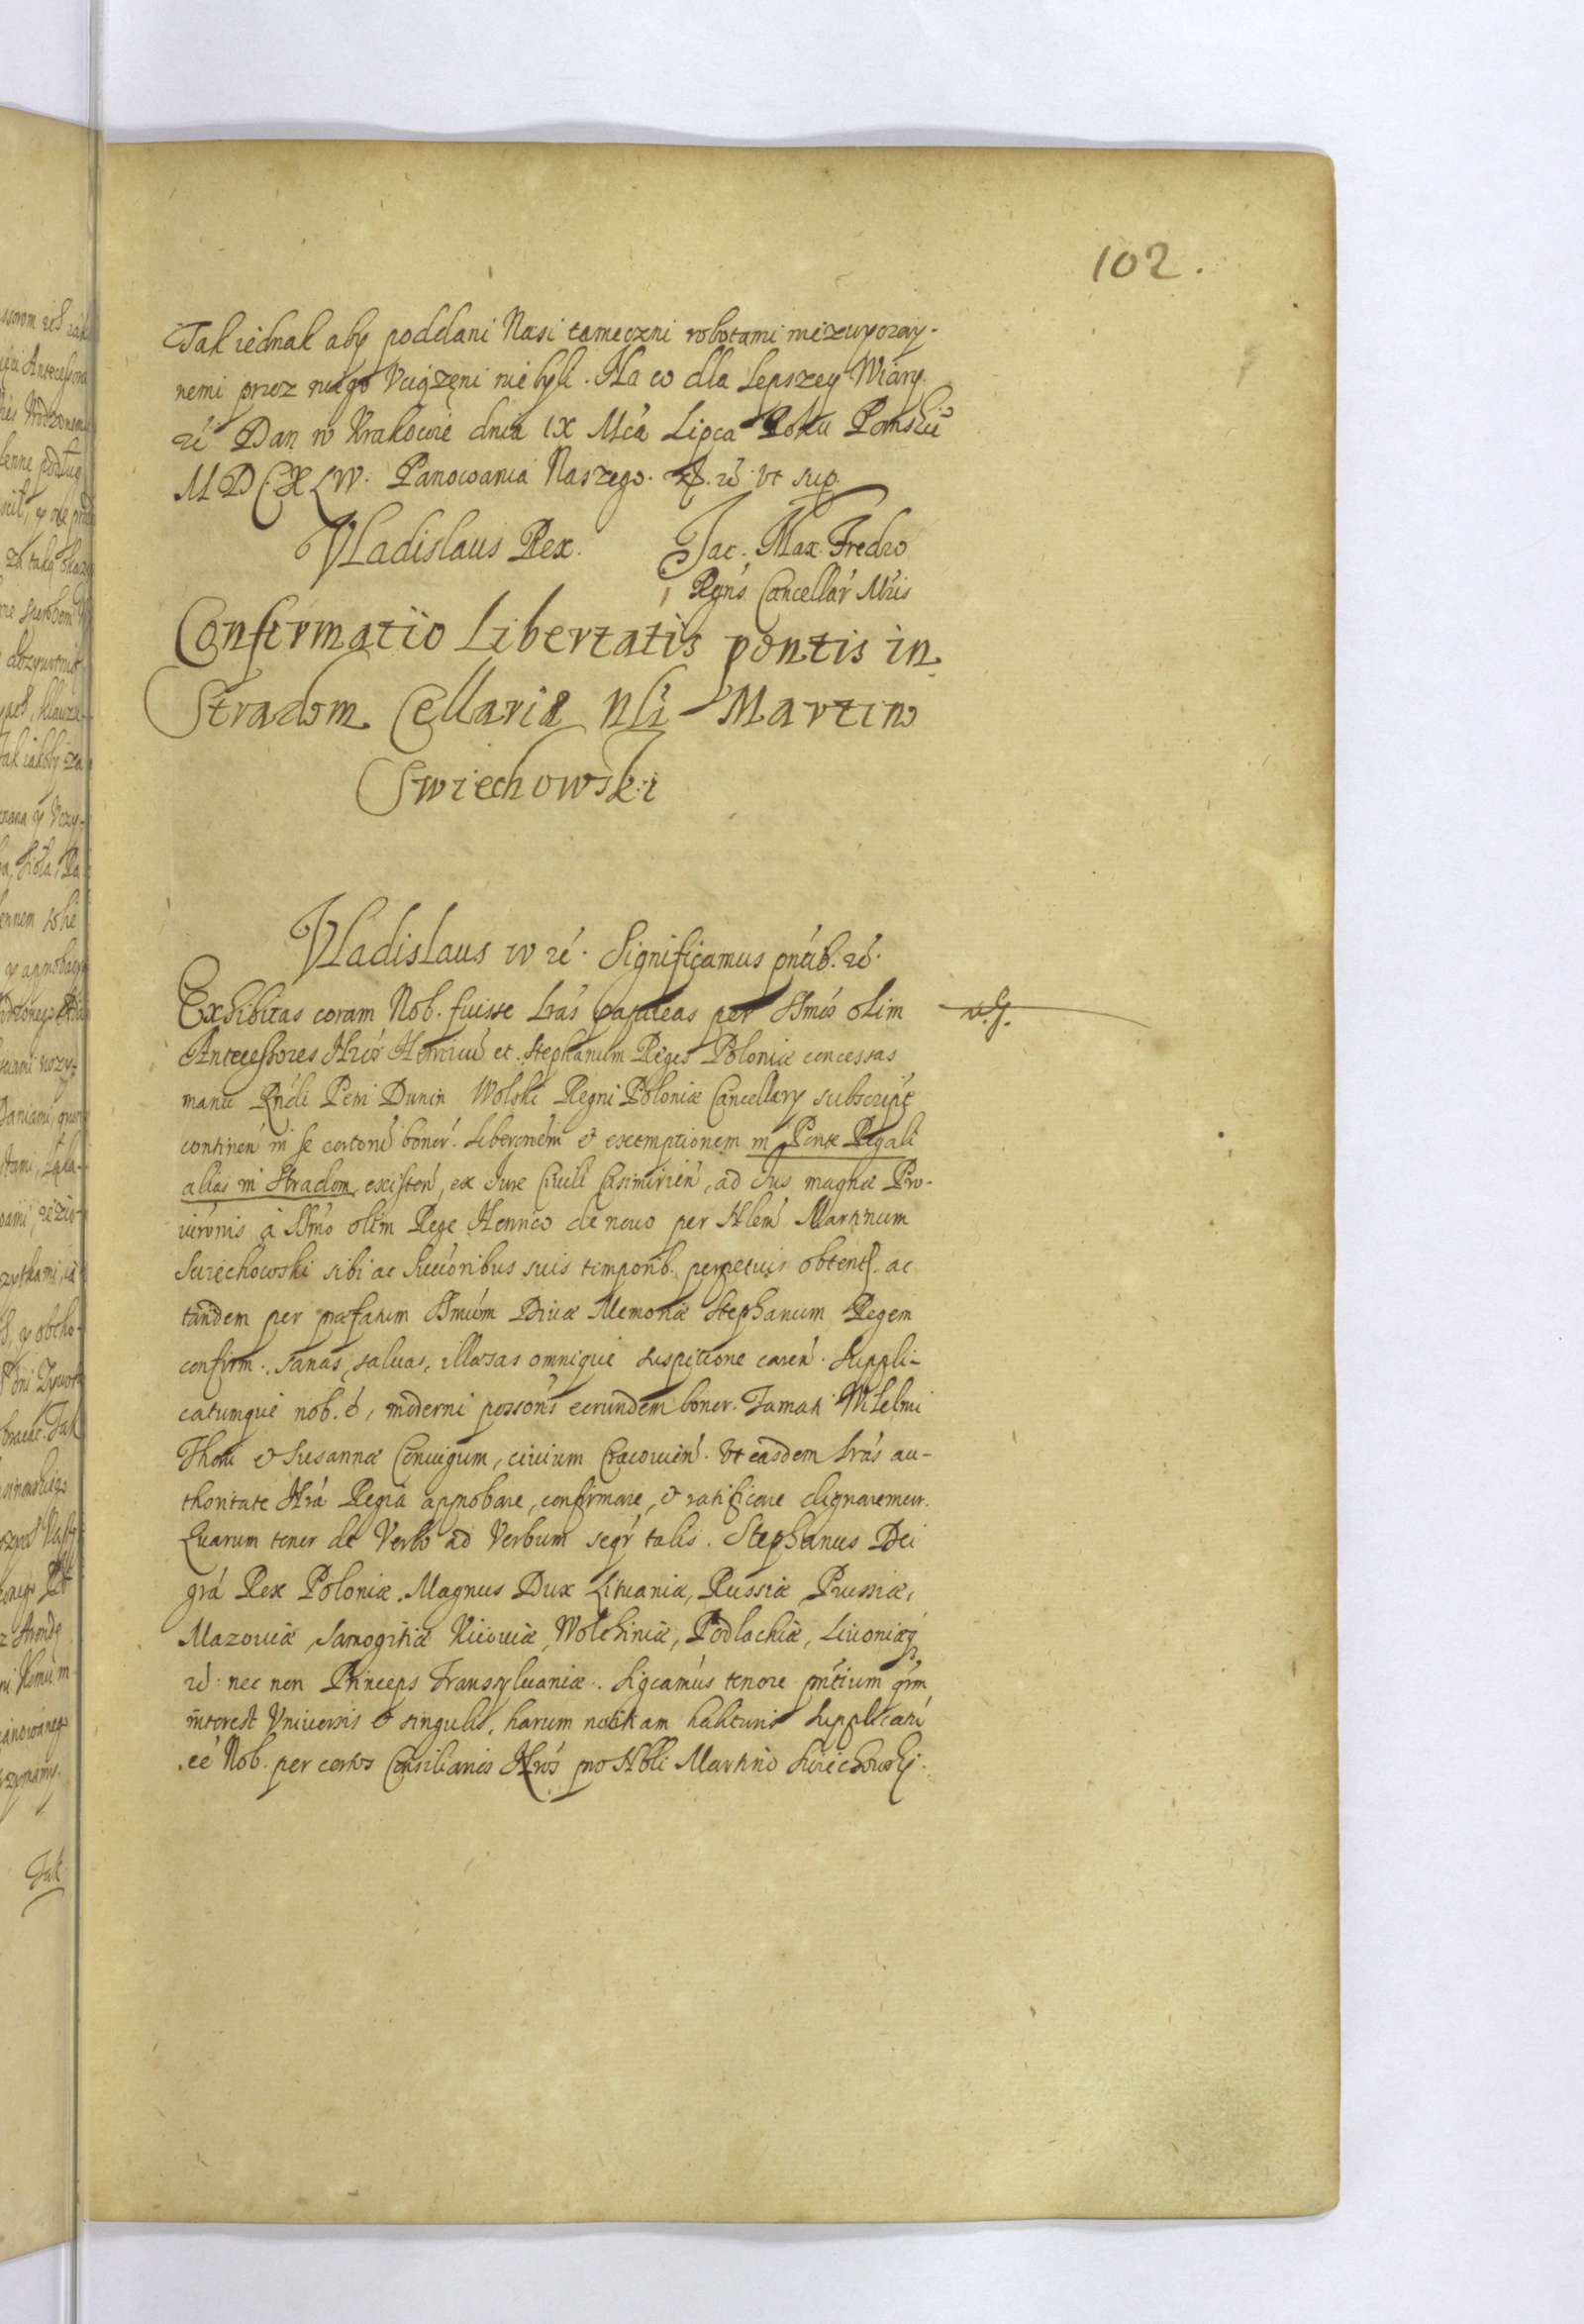 102.
Tak iednak aby poddani Nasi tameczni robotami niezwyczay-
nemi przez niego Vciążęni nie byli. Na co dla Lepszey Wiary
ré Dan w Krakowie dnia IX Mca Lipca Roku Pomskie
MDCXLVV. Panowania Naszego. ré vt sup.
Vladislaus Rex. Jac. Max. Fredro
Regns Cancellar Mris
Confirmatio Libertatis pontis in
Stradom Cellariæ Nli Martino
Swiechowski
Vladislaus IV ré. Significamus pntib. ré.
Exhibitas coram Nob. fuisse Lrás papireas per SSmos olim
Antecessores Nros Henricú et Stephanum Reges Poloniæ concessas
manu Rndi Petri Dunin Wolski Regni Poloniæ Cancellary subscript
continen in se certorú bonor. Libertnem & exemptionem in Ponte Regali
alias in Stradom existen, ex Jure Ciuili Casimirien, ad Jus magnæ Pro-
uironis à SSmo olim Rege Henrico de nouo per Nlem Martinum
Swiechowski sibi ac Succoribus suis temporib. perpetuis obtent. ac
tandem per præfatum SSmúm Diuæ Memoriæ Stephanum Regem
confirm. sanas, saluas, illæsas omnique suspitione caren. Suppli-
catumque nob. é, moderni possoris eorundem bonor. Famati Wilelmi
Thori & Susannæ Coniugum, ciuium Cracouien. Vt easdem Lrás au-
thoritate Nrá Regiâ approbare, confirmare, & ratificare dignaremur.
Quarum tenor de Verbo ad Verbum seqr talis. Stephanus Dei
grá Rex Poloniæ. Magnus Dux Lituaniæ, Russiæ Prussiæ,
Mazouiæ, Samogitiæ Kiouiæ, Wolchiniæ, Podlachiæ, Liuoniæq
ré nec non Princeps Transyluaniæ. Sigcamús tenore pntium qrm
interest Vniuersis & singulis, harum notitiam habituris Supplicatú
eé Nob. per certos Consiliarios Nros pro Nbli Martino Swiechowski.